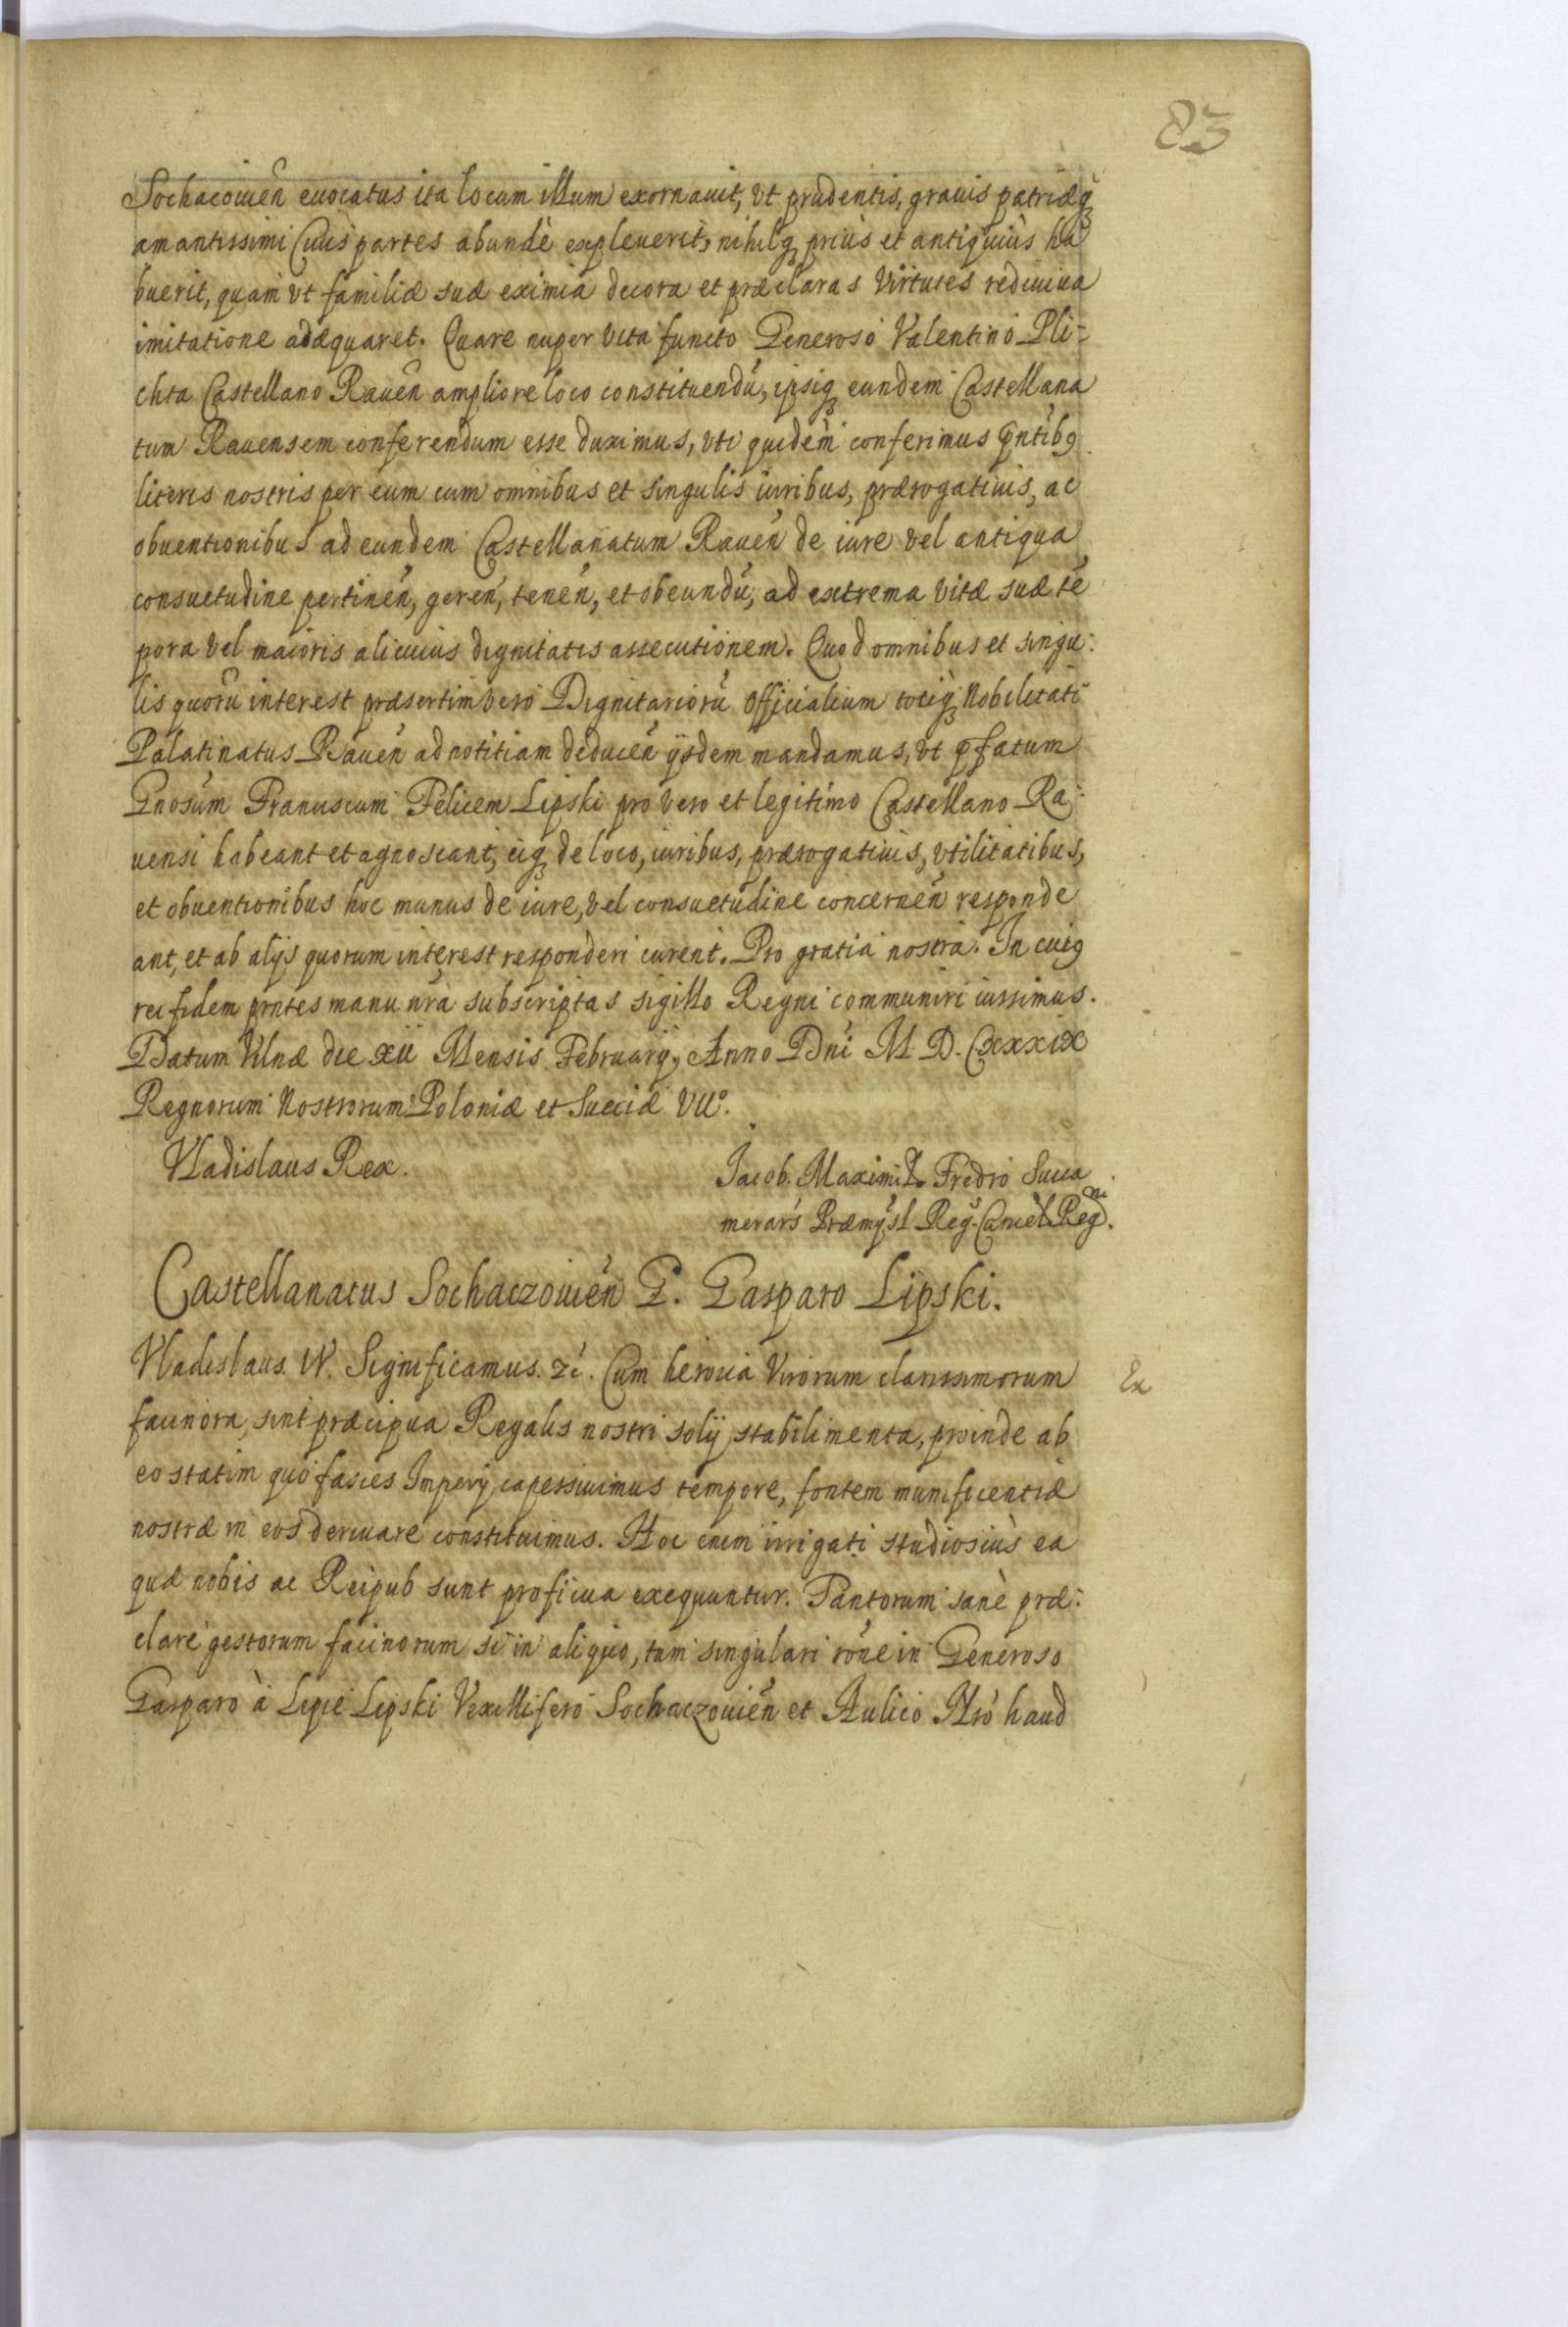 83
Sochacouień euocatus ita locum illum exornauit, vt prudentis, grauis patriæq
amantissimi Ciuis partes abundè expleuerit, nihilq prius et antiquiùs ha
buerit, quam vt familiæ suæ eximia decora et præclaras virtutes rediuiua
imitatione adæquaret. Quare nuper vita functo Generoso Valentino Pli-
chta Castellano Raueñ ampliore loco constituendū, ipsiq eundem Castellana
tum Rauensem conferendum esse duximus, vti quidem conferimus pntibg
literis nostris per eum cum omnibus et singulis iuribus, prærogatiuis, ac
obuentionibus ad eundem Castellanatum Raueñ de iure vel antiqua
consuetudine pertineñ, gereñ, teneñ, et obeundū, ad extrema vitæ suæ tē
pora vel maioris alicuius dignitatis assecutionem. Quod omnibus et singu:
lis quorū interest præsertim vero Dignitariorū Officialium totiq Nobilitati
Palatinatus Raueñ ad notitiam deduceñ ijsdem mandamus, vt pfatum
Gnosum Franciscum Felicem Lipski pro vero et legitimo Castellano Ra:
uensi habeant et agnoscant, eiq de loco, iuribus, prærogatiuis, vtilitatibus,
et obuentionibus hoc munus de iure, vel consuetudine concerneñ responde
ant, et ab alijs quorum interest responderi curent. Pro gratia nostra. In cuig
rei fidem pntes manu nrā subscriptas sigillo Regni communiri iussimus.
Datum Vilnæ die XII Mensis February, Anno Dni M. D. CXXXIX
Regnorum Nostrorum Poloniæ et Sueciæ VIIº.
Vladislaus Rex.
Jacob. Maximil. Fredro Succa
merars Præmysl Reg. Cancel. Regni.
Castellanatus Sochaczouień G. Gasparo Lipski.
Vladislaus. IV. Significamus. &c. Cum heroica Virorum clarissimorum
facinora, sint præcipua Regalis nostri solij stabilimenta, proinde ab
eo statim quo fasces Impery capessiuimus tempore, fontem munificentiæ
nostræ in eos deriuare constituimus. Hoc enim irrigati studiosiùs ea
quæ nobis ac Reipub sunt proficua exequuntur. Tantorum sanè præ:
clarè gestorum facinorum si in aliquo, tum singulari rōne in Generoso
Gasparo à Lipie Lipski Vexillifero Sochaczouień et Aulico Nrō haud